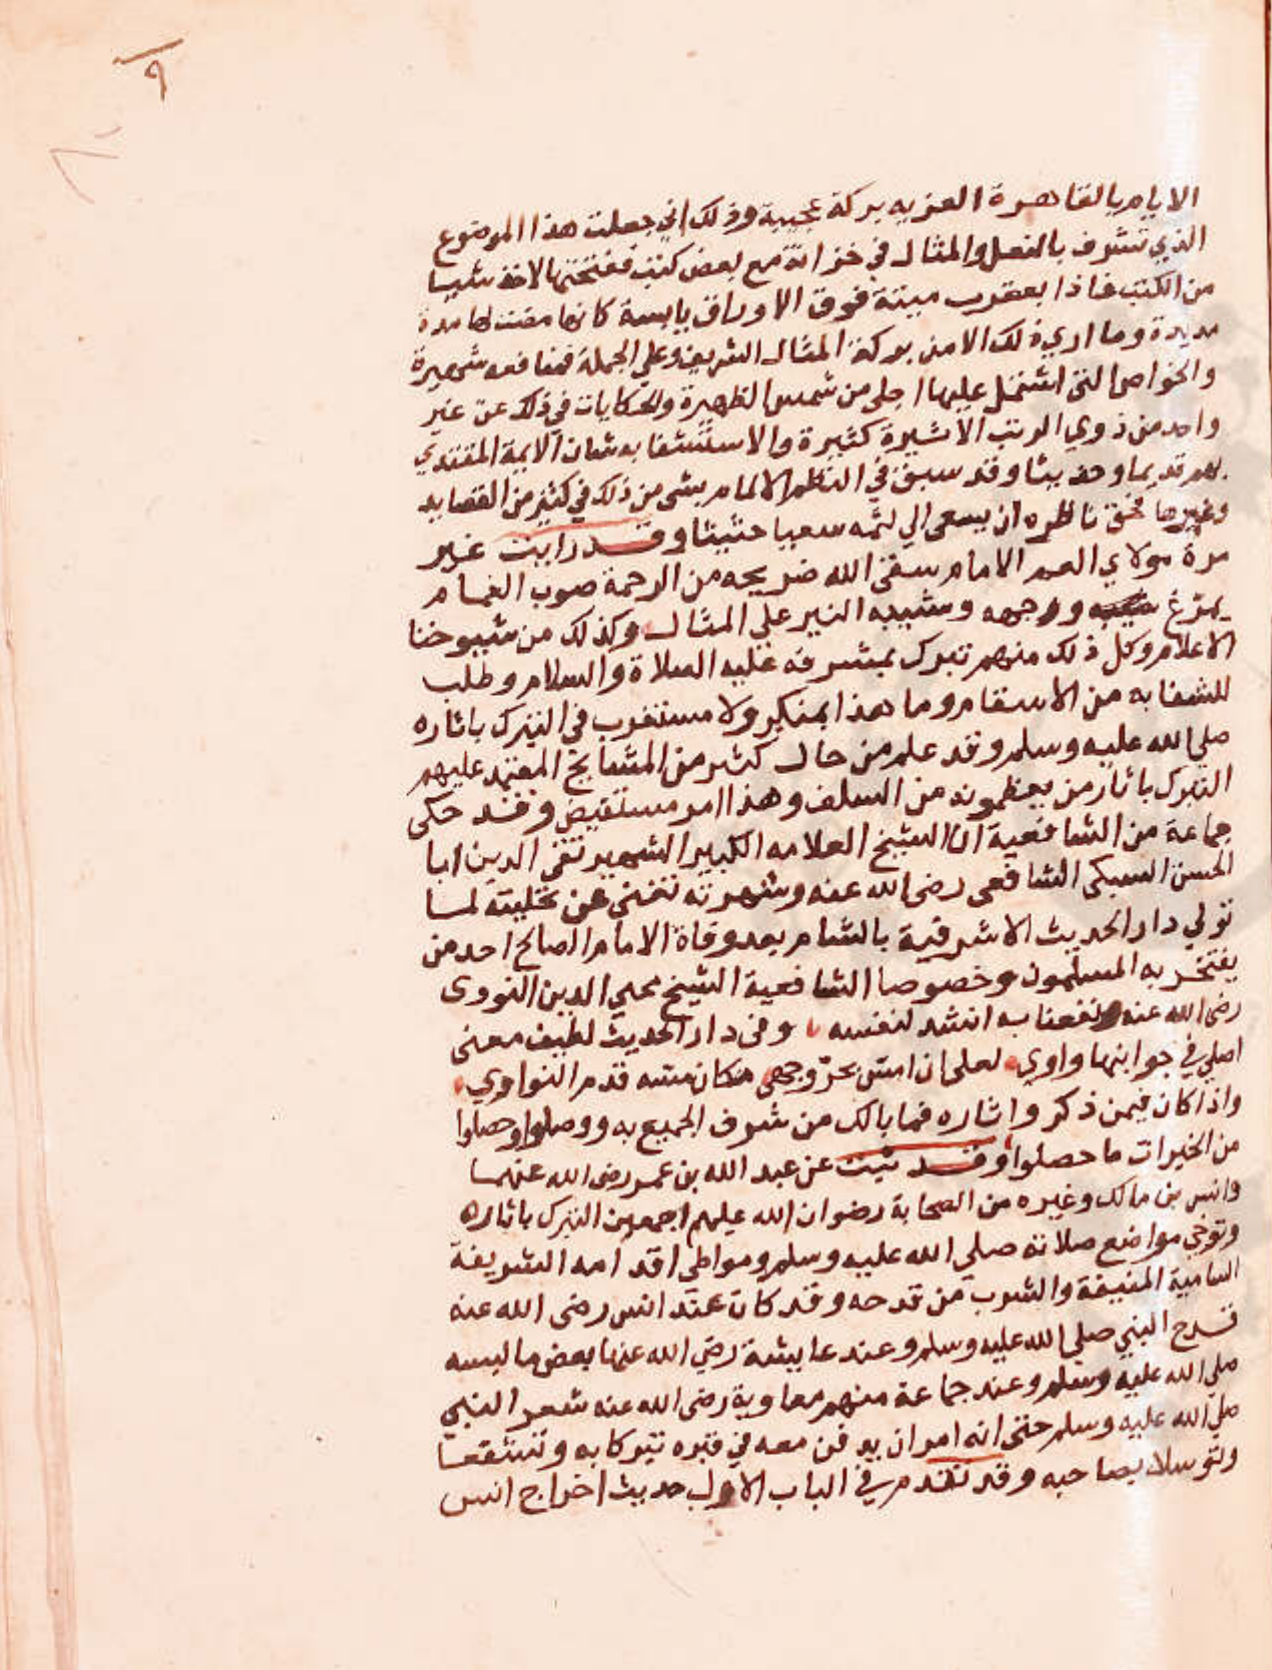 ٩
الايام بالقاهرة العزيه بركة عجيبة وذلك اني جعلت هذا الموضوع
الذي تشرف بالنعل والمثال في خزانة مع بعض كتب ففتحتها لاخذ شيئا
من الكتب فاذا بعقرب ميتة فوق الاوراق يابسة كانها مضت لها مدة
مديدة وما اري ذلك الا من بركة المثال الشريف وعلي الجملة فمنافعه شهيرة
والخواص التي اشتمل عليها اجلي من شمس الظهيرة والحكايات في ذلك عن غير
واحد من ذوي الرتب الاثيرة كثيرة والاستشفا به شان الايمة المقتدي
بهم قديما وحديثا وقد سبق في النظم الالمام بشي من ذلك في كثير من القصايد
وغيرها فحق ناظره ان يسعي الي لثمه سعيا حثيثا وقد رايت غير
مرة مولاي العم الامام سقي الله ضريحه من الرحمة صوب الغمام
يمرغ وجهه وشيبه النير علي المثال وكذلك من شيوخنا
الاعلام وكل ذلك منهم تبرك بمشرفه عليه الصلاة والسلام وطلب
للشفا به من الاسقام وما هذا بمنكر ولا مستغرب في التبرك باثاره
صلي الله عليه وسلم وقد علم من حال كثير من المشايخ المعتمد عليهم
التبرك باثار من يعظمونه من السلف وهذا امر مستفيض وقد حكى
جماعة من الشافعية ان الشيخ العلامه الكبير الشهير تقي الدين ابا
الحسن السبكي الشافعي رضي الله عنه وشهرته تغني عن تحليته لما
تولي دار الحديث الاشرفية بالشام بعد وفاة الامام الصالح احد من
يفتخر به المسلمون وخصوصا الشافعية الشيخ محيي الدين النووى
رضي الله عنه ونفعنا به انشد لنفسه وفي دار الحديث لطيف معنى
اصلي في جوانبها واوي لعلي ان امس بحر وجهي مكان مسه قدم النواوي
واذا كان فيمن ذكر واثاره فما بالك من شرف الجميع به ووصلوا وحصلوا
من الخيرات ما حصلوا وقد ثبت عن عبد الله بن عمر رضي الله عنهما
وانس بن مالك وغيره من الصحابة رضوان الله عليهم اجمعين التبرك باثاره
وتوخي مواضع صلاته صلي الله عليه وسلم ومواطي اقدامه الشريفة
السامية المنيفة والشرب من قدحه وقد كان عند انس رضي الله عنه
قدح النبي صلي الله عليه وسلم وعند عايشة رضي الله عنها بعض ما لبسه
صلي الله عليه وسلم وعند جماعة منهم معاوية رضي الله عنه شعر النبي
صلي الله عليه وسلم حتى انه امر ان يدفن معه في قبره تبركا به وتشفعا
وتوسلا بصاحبه وقد تقدم في الباب الاول حديث اخراج انس